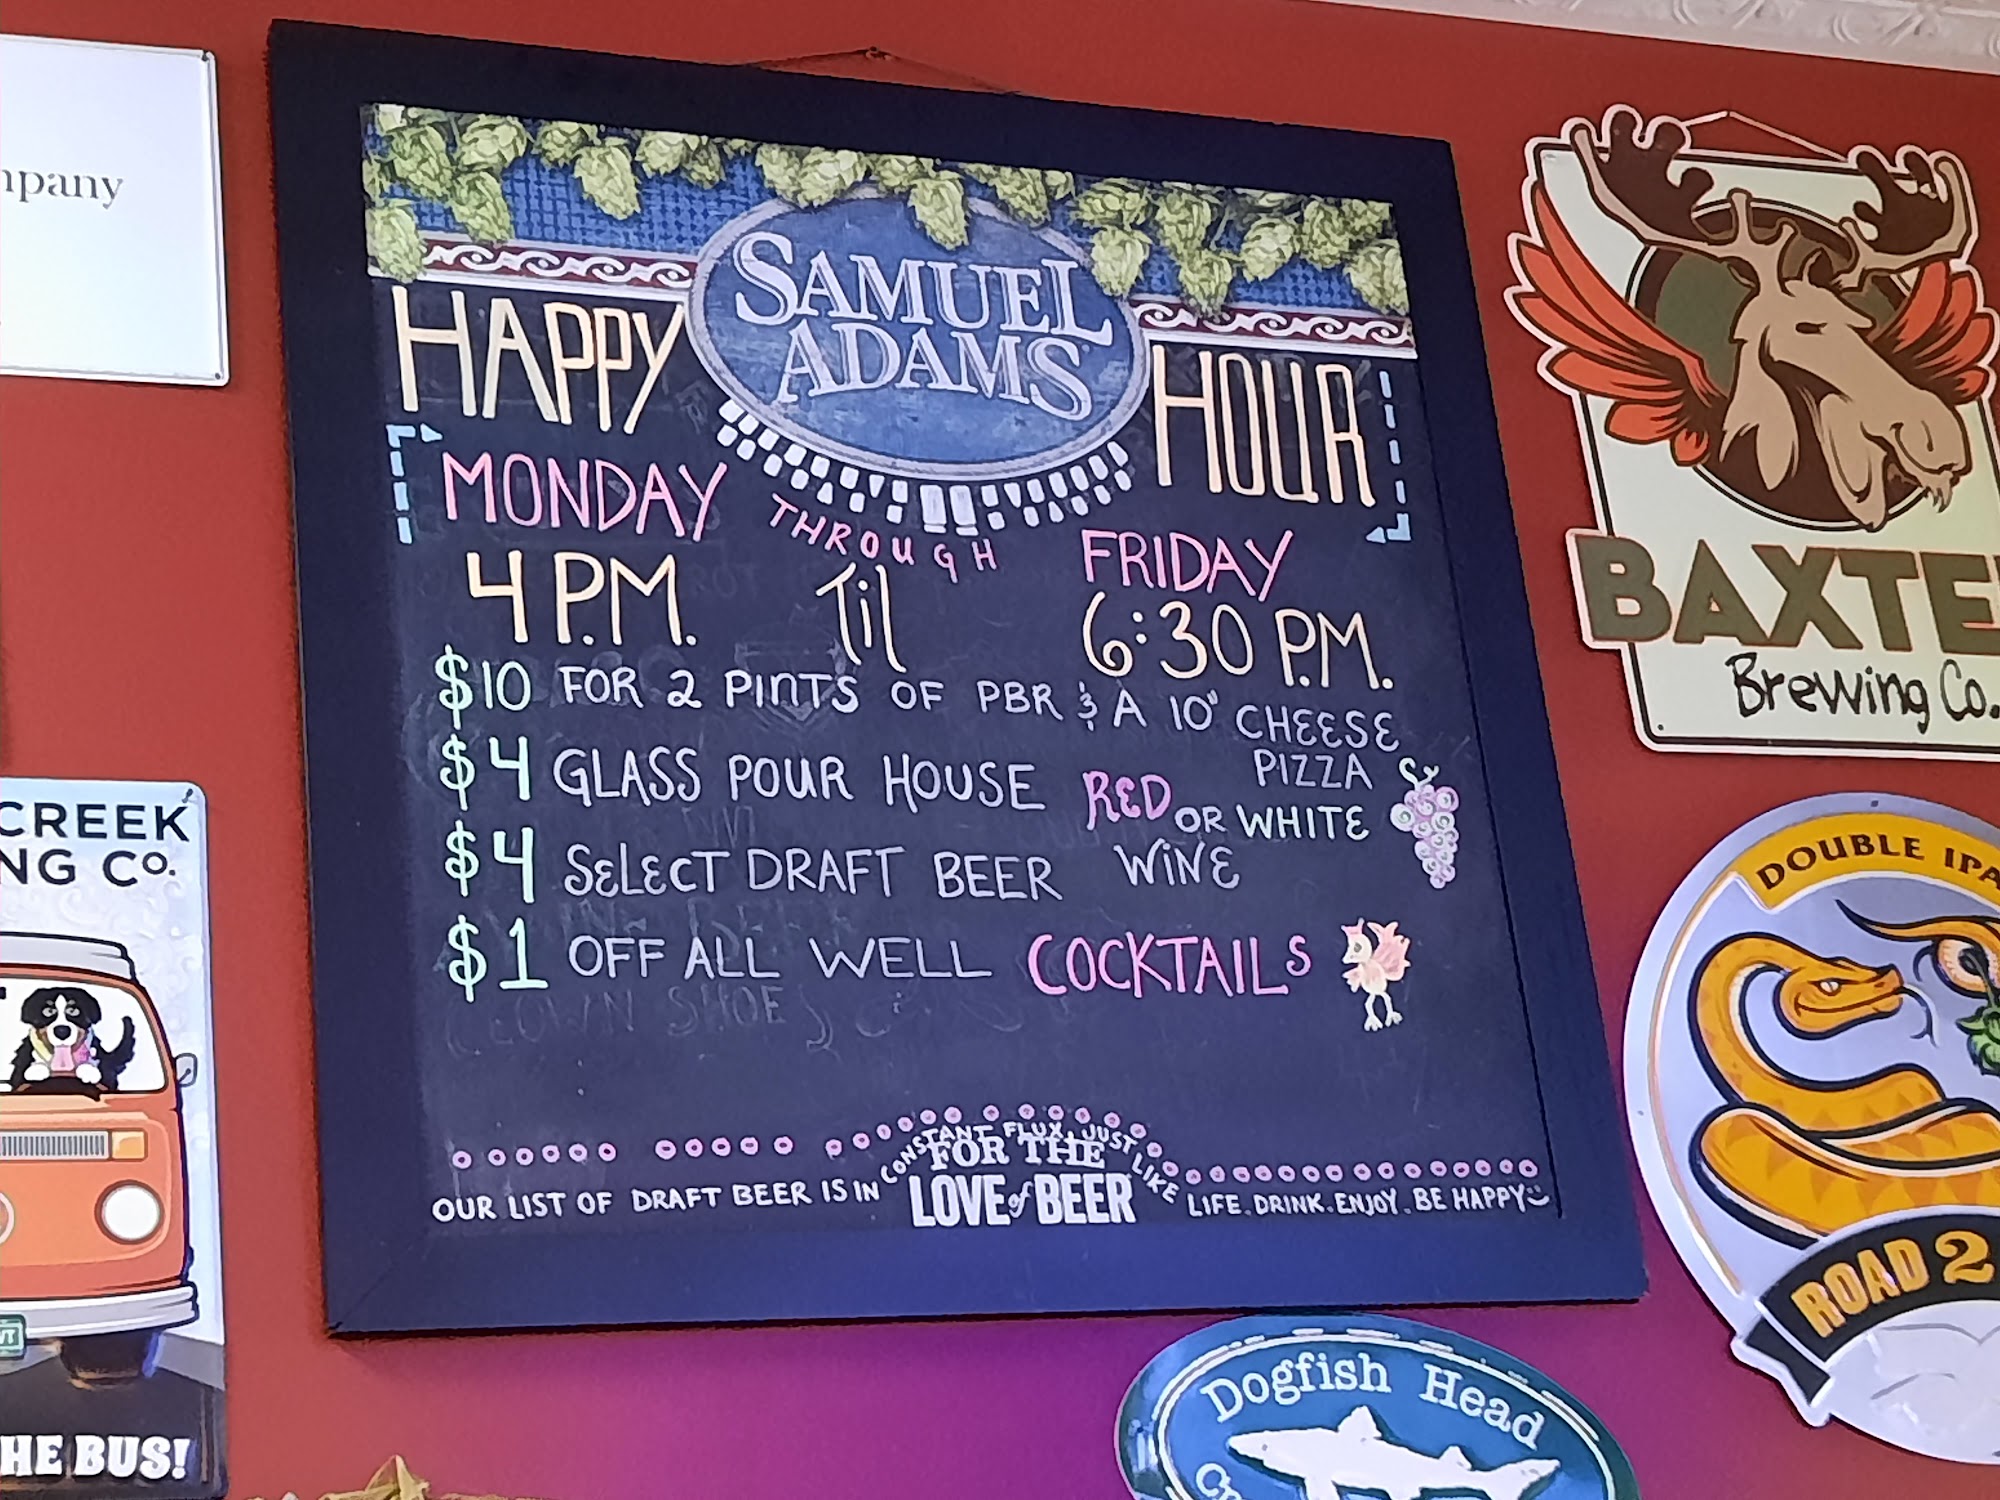 mpany
SAMUEL
ADAMS
HAPPY HOUR
MONDAY THROUGH FRIDAY
4 P.M. Til 6:30 P.M.
$10 FOR 2 PINTS OF PBR & A 10" CHEESE
PIZZA
$4 GLASS POUR HOUSE RED OR WHITE
WINE
$4 SELECT DRAFT BEER
$1 OFF ALL WELL COCKTAILS
OUR LIST OF DRAFT BEER IS IN CONSTANT FLUX, JUST LIKE LIFE. DRINK. ENJOY. BE HAPPY
FOR THE
LOVE of BEER
BAXTE
Brewing Co.
CREEK
NG Co.
VT
HE BUS!
DOUBLE IPA
ROAD 2
Dogfish Head